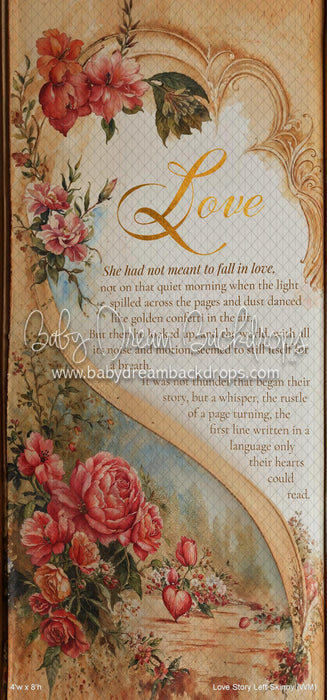 Love
She had not meant to fall in love,
not on that quiet morning when the light
spilled across the pages and dust danced
like golden confetti in the air.
But then he looked up, and the world, with all
its noise and motion, seemed to still itself for
a breath.
Baby Dream Backdrops
www.babydreambackdrops.com
It was not thunder that began their
story, but a whisper, the rustle
of a page turning, the
first line written in a
language only
their hearts
could
read.
4'w x 8'h
Love Story Left Skinny (WM)